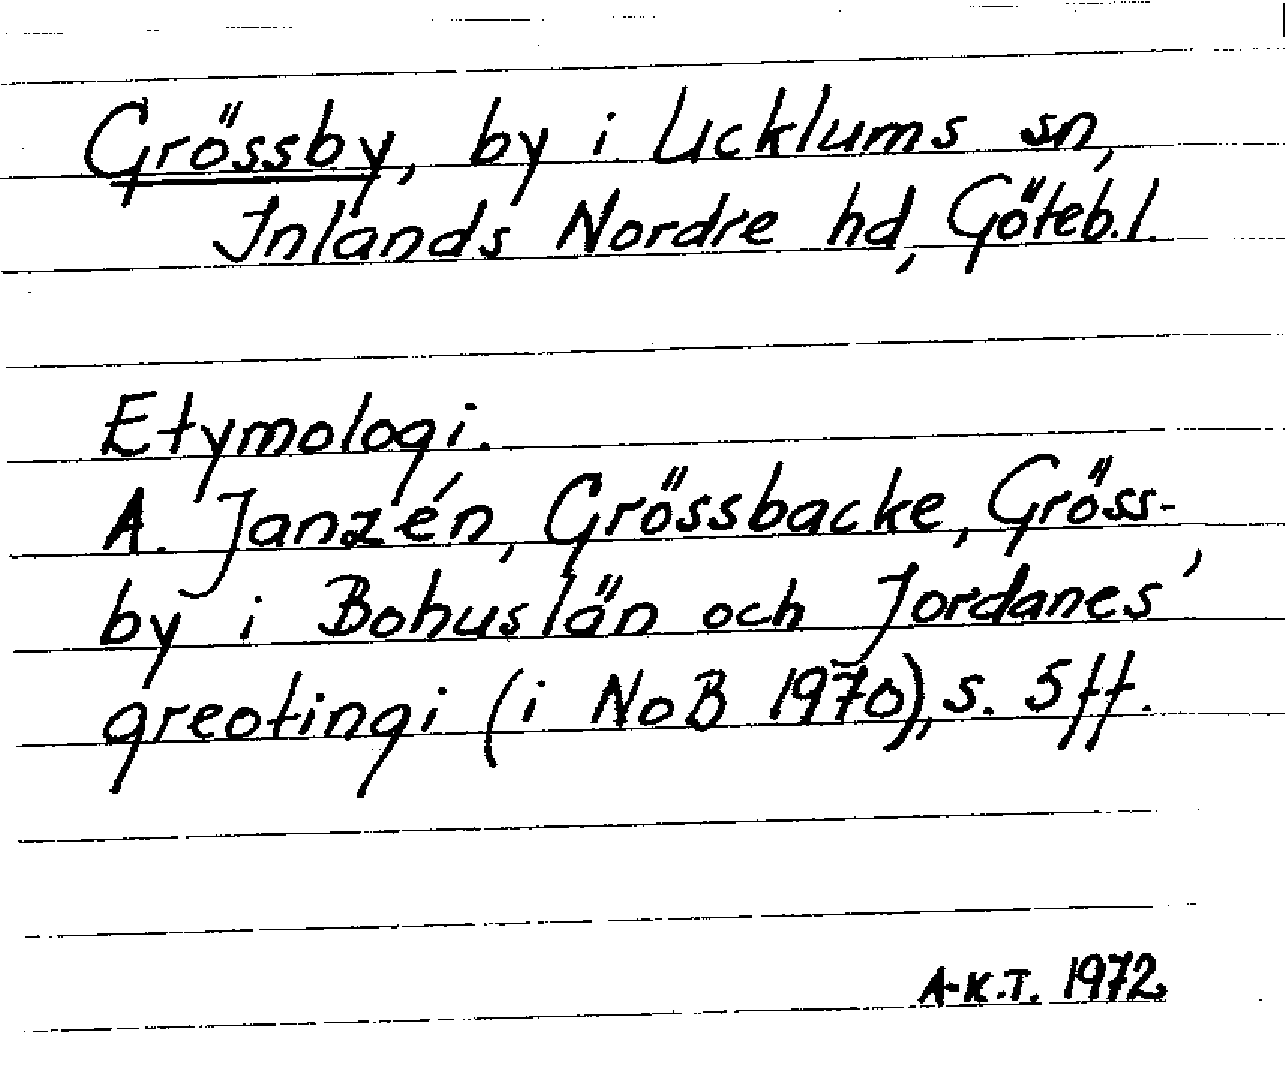 Grössby, by i Ucklums sn,
Inlands Nordre hd, Göteb.l.
Etymologi.
A. Janzén, Grössbacke, Gröss-
by i Bohuslän och Jordanes'
greotingi (i NoB 1970), s. 5 ff.
A-K.T. 1972.